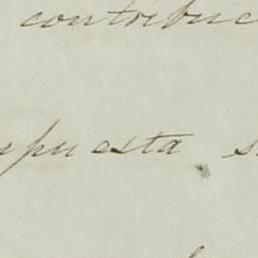 contribuc
spuesta s